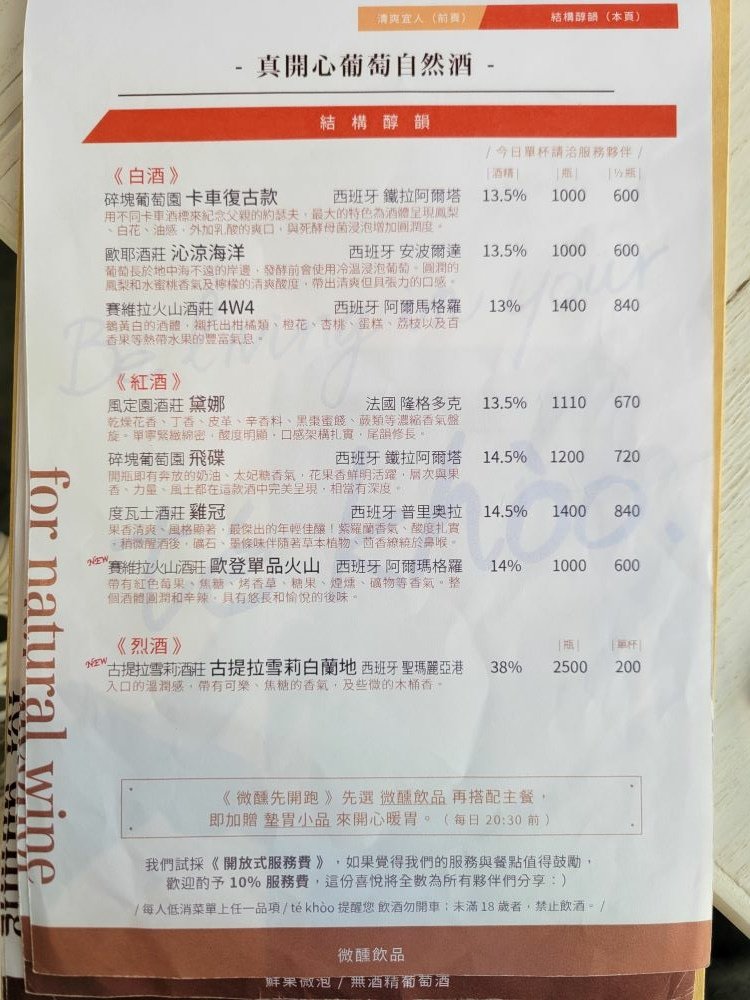 清爽宜人（前頁） 結構醇韻（本頁）
- 真開心葡萄自然酒 -
結構醇韻
/ 今日單杯請洽服務夥伴 /
《 白酒 》 |酒精| |瓶| |½瓶|
碎塊葡萄園 卡車復古款 西班牙 鐵拉阿爾塔 13.5% 1000 600
用不同卡車酒標來紀念父親的約瑟夫，最大的特色為酒體呈現鳳梨
、白花、油感，外加乳酸的爽口，與死酵母菌浸泡增加圓潤度。
歐耶酒莊 沁涼海洋 西班牙 安波爾達 13.5% 1000 600
葡萄長於地中海不遠的岸邊，發酵前會使用冷溫浸泡葡萄。圓潤的
鳳梨和水蜜桃香氣及檸檬的清爽酸度，帶出清爽但具張力的口感。
賽維拉火山酒莊 4W4 西班牙 阿爾馬格羅 13% 1400 840
鵝黃白的酒體，襯托出柑橘類、橙花、杏桃、蛋糕、荔枝以及百
香果等熱帶水果的豐富氣息。
《 紅酒 》
風定園酒莊 黛娜 法國 隆格多克 13.5% 1110 670
乾燥花香、丁香、皮革、辛香料、黑棗蜜餞、蕨類等濃縮香氣盤
旋。單寧緊緻綿密，酸度明顯，口感架構扎實，尾韻修長。
碎塊葡萄園 飛碟 西班牙 鐵拉阿爾塔 14.5% 1200 720
開瓶即有奔放的奶油、太妃糖香氣，花果香鮮明活躍，層次與果
香、力量、風土都在這款酒中完美呈現，相當有深度。
度瓦士酒莊 雞冠 西班牙 普里奧拉 14.5% 1400 840
果香清爽、風格顯著，最傑出的年輕佳釀！紫羅蘭香氣、酸度扎實
，稍微醒酒後，礦石、墨條味伴隨著草本植物、茴香繚繞於鼻喉。
NEW 賽維拉火山酒莊 歐登單品火山 西班牙 阿爾瑪格羅 14% 1000 600
帶有紅色莓果、焦糖、烤香草、糖果、煙燻、礦物等香氣。整
個酒體圓潤和辛辣，具有悠長和愉悅的後味。
《 烈酒 》 |瓶| |單杯|
NEW 古提拉雪莉酒莊 古提拉雪莉白蘭地 西班牙 聖瑪麗亞港 38% 2500 200
入口的溫潤感，帶有可樂、焦糖的香氣，及些微的木桶香。
for natural wine
《 微醺先開跑 》 先選 微醺飲品 再搭配主餐，
即加贈 墊胃小品 來開心暖胃。（ 每日 20:30 前 ）
我們試採《 開放式服務費 》，如果覺得我們的服務與餐點值得鼓勵，
歡迎酌予 10% 服務費，這份喜悅將全數為所有夥伴們分享：）
/ 每人低消菜單上任一品項 / té khòo 提醒您 飲酒勿開車；未滿 18 歲者，禁止飲酒。 /
微醺飲品
鮮果微泡 / 無酒精葡萄酒